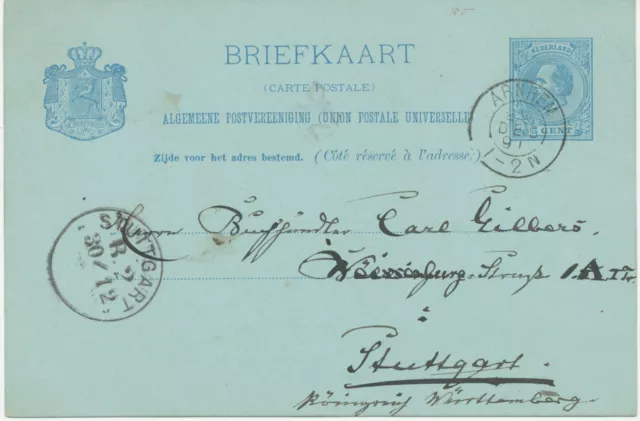 105
BRIEFKAART
(CARTE POSTALE)
ALGEMEENE POSTVEREENIGING (UNION POSTALE UNIVERSELLE)
Zijde voor het adres bestemd. (Côté réservé à l'adresse.)
NEDERLAND
CENT
ARNHEM
DEC
91
1-2N
STUTTGART
30/12
Herrn Buchhändler Carl Gilbers
Weissenburg-Strasse 1
Stuttgart
Königreich Württemberg